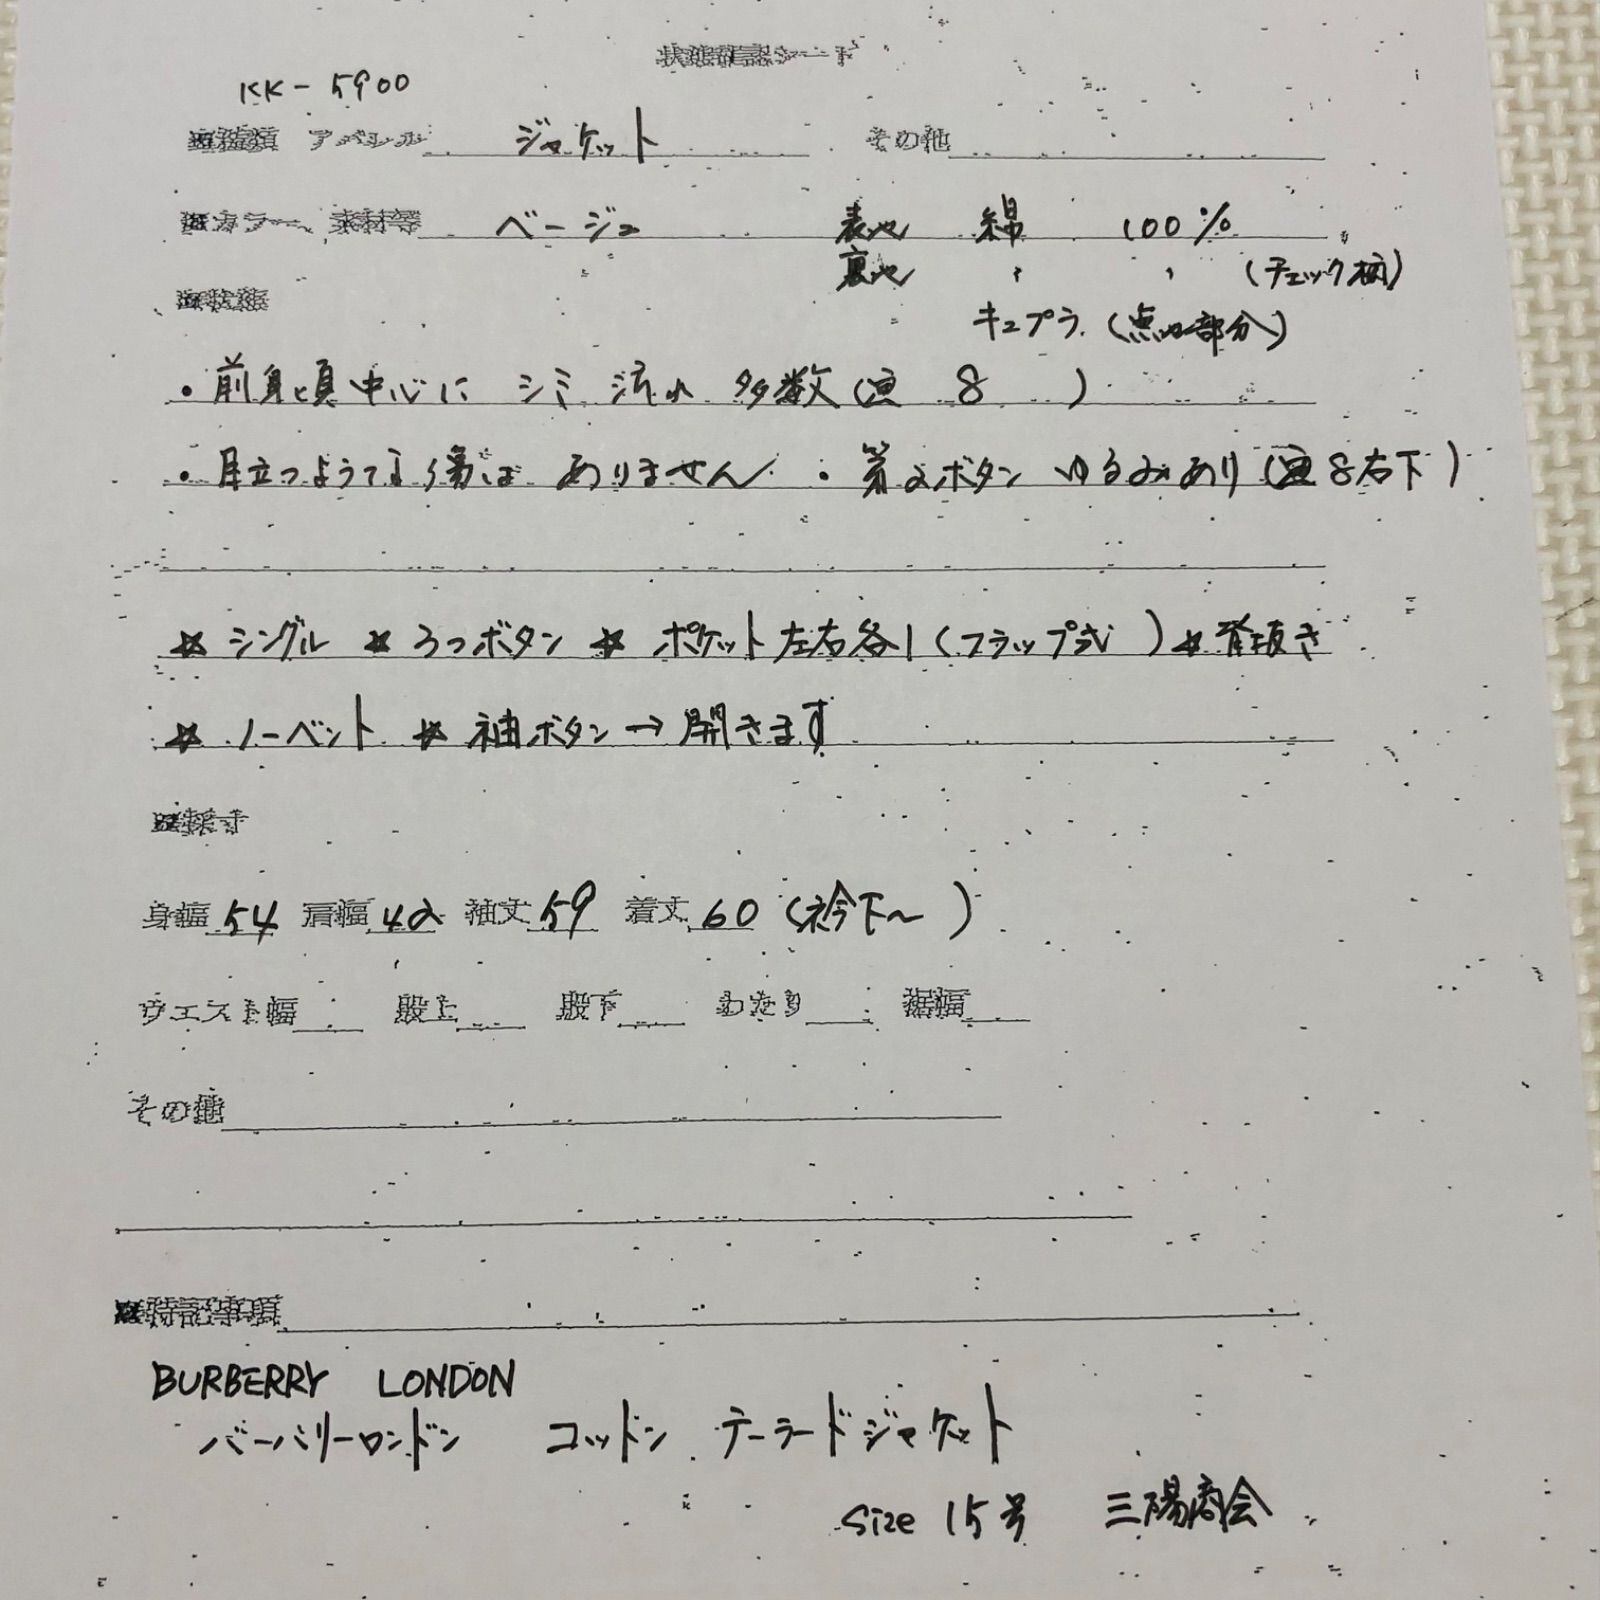 状態確認シート
KK-5900
※種類 アパレル ジャケット その他
※カラー、素材等 ベージュ 表地 綿 100%
裏地 〃 〃 (チェック柄)
※状態
キュプラ (無地部分)
・前身頃中心に シミ 流れ 多数(画 8 )
・目立つような傷は ありません ・第2ボタン ゆるみあり(画8右下)
☆シングル ☆3つボタン ☆ポケット左右各1(フラップ式) ☆背抜き
☆ノーベント ☆袖ボタン→開きます
※採寸
身幅54 肩幅42 袖丈59 着丈60(衿下〜 )
ウエスト幅 股上 股下 わたり 裾幅
その他
※特記事項
BURBERRY LONDON
バーバリーロンドン コットン テーラードジャケット
size 15号 三陽商会